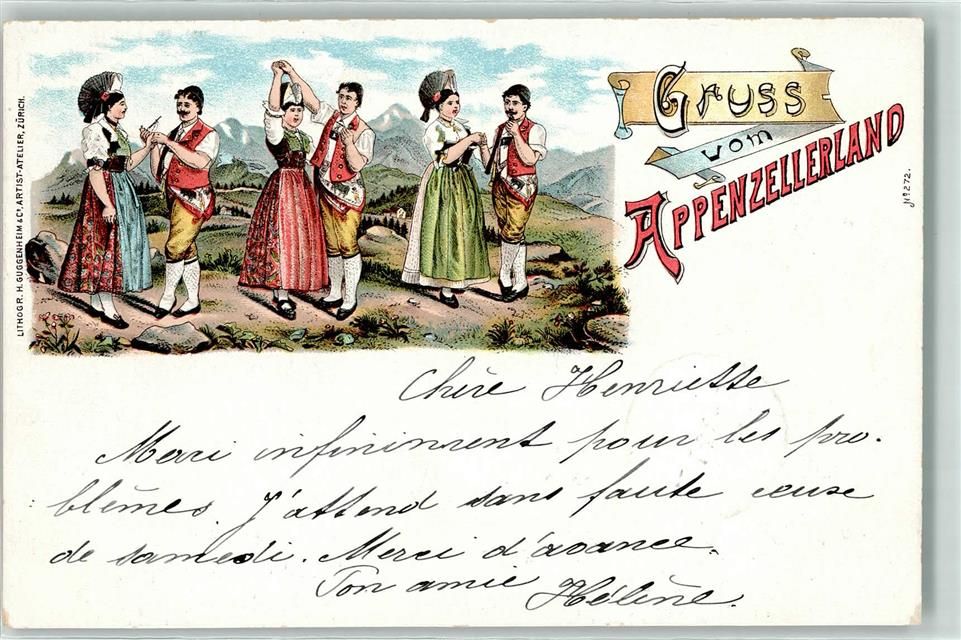 LITHOGR. H. GUGGENHEIM & Co, ARTIST-ATELIER, ZÜRICH.
GRUSS
VOM
APPENZELLERLAND
No 272.
Chère Henriette
Merci infiniment pour les pro-
blêmes. J'attend sans faute ceux
de samedi. Merci d'avance.
Ton amie Hélène.